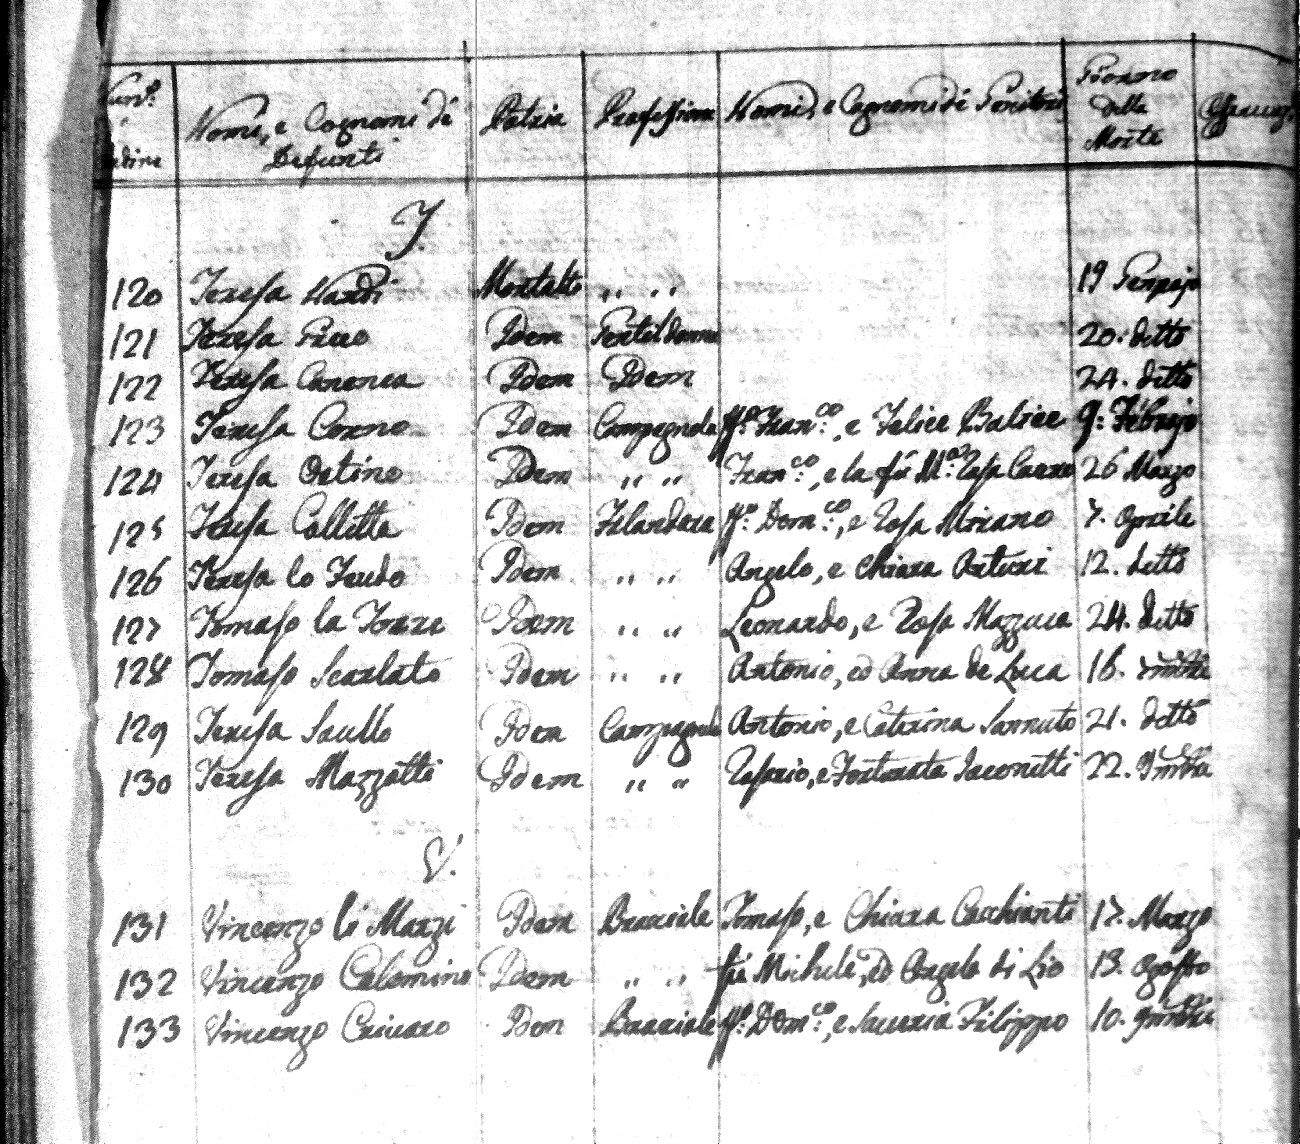 Num.º
Nomi, e Cognomi di
Defunti
Patria
Professione
Nomi, e Cognomi di Genitori
Giorno
della
Morte
T.
120 Teresa Nardi Montalto ,, ,, 19 Gennajo
121 Teresa Idem Gentildonna 20. detto
122 Teresa Idem Idem 24. detto
123 Teresa Corno Idem Campagnola Fran.co, e Felice 9. Febrajo
124 Teresa Ortino Idem ,, ,, Fran.co, e la fu 26 Marzo
125 Teresa Colletta Idem Filandara Dom.co, e Rosa Morano 7. Aprile
126 Teresa lo Feudo Idem ,, ,, Angelo, e Chiara Arturi 12. detto
127 Tomaso la Torre Idem ,, ,, Leonardo, e Rosa Mazzuca 24. detto
128 Tomaso Scarlato Idem ,, ,, Antonio, ed Anna de Luca 16.
129 Teresa Saullo Idem Campagnola Antonio, e Caterina Sannuto 21. detto
130 Teresa Mazzotti Idem ,, ,, Rosario, e Fortunata Iaconetti 22.
V.
131 Vincenzo li Marzi Idem Bracciale Tomaso, e Chiara Cacchianti 17. Marzo
132 Vincenzo Colomino Idem ,, ,, fu Michele, ed Angela di Lio 13. Agosto
133 Vincenzo Idem Bracciale Dom.co, e Filippo 10.